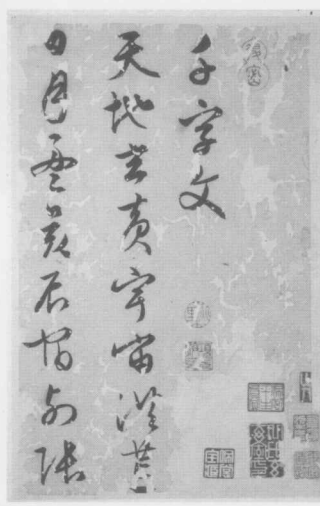 千字文
天地玄黃宇宙洪荒
日月盈昃辰宿列張